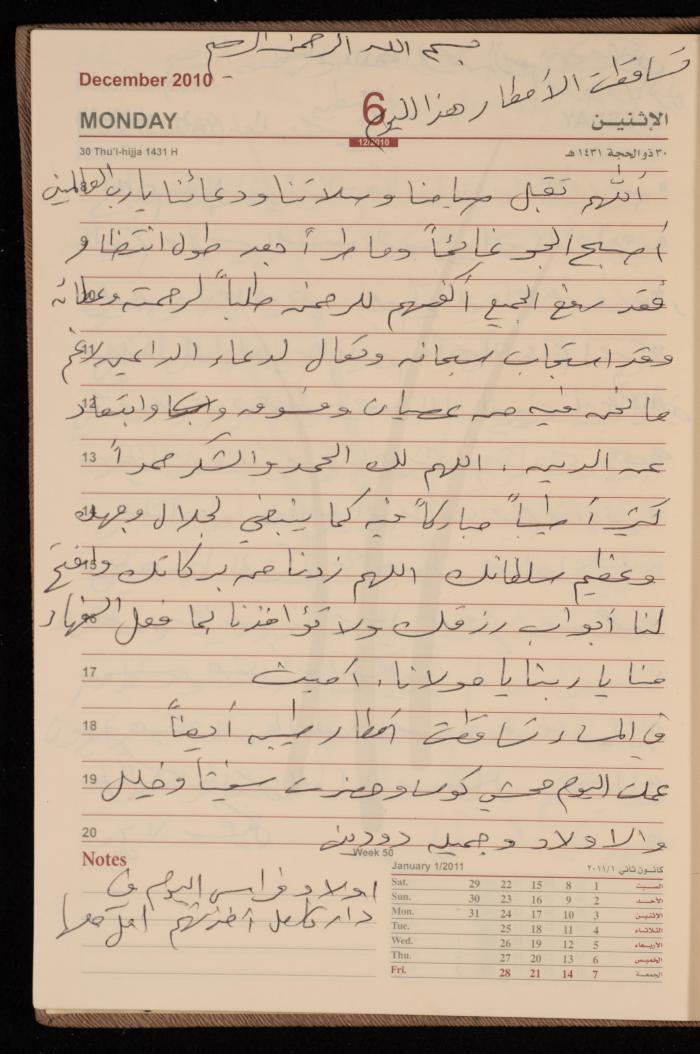 بسم الله الرحمن الرحيم
تساقطت الأمطار هذا اليوم
December 2010
MONDAY
6
الإثنين
12/2010
30 Thu'l-hijja 1431 H
٣٠ ذو الحجة ١٤٣١ هـ
اللهم تقبل صيامنا وصلاتنا ودعائنا يا رب العالمين
أصبح الجو غائماً وماطراً بعد طول انتظار
فقد رفع الجميع أكفهم للرحمن طلباً لرحمته وعطائه
11
وقد استجاب سبحانه وتعالى لدعاء الداعين لا غم
12
ما نحن فيه من عصيان وفسوق وابتعاد
13
عن الدين. اللهم لك الحمد والشكر حمداً
14
كثيراً طيباً مباركاً فيه كما ينبغي لجلال وجهك
15
وعظيم سلطانك اللهم زدنا من بركاتك وافتح
لنا أبواب رزقك ولا تؤاخذنا بما فعل السفهاء
17
منا يا ربنا يا مولانا. آمين
18
في المساء تساقطت أمطار طيبه أيضاً
19
عملت اليوم محشي كوسا وحضرت وخليل
20
والاولاد وجميله
Notes
اولاد فراس اليوم في
دار
Week 50
January 1/2011
كانون ثاني ٢٠١١/١
Sat. 29 22 15 8 1 السبت
Sun. 30 23 16 9 2 الأحد
Mon. 31 24 17 10 3 الإثنين
Tue. 25 18 11 4 الثلاثاء
Wed. 26 19 12 5 الأربعاء
Thu. 27 20 13 6 الخميس
Fri. 28 21 14 7 الجمعة